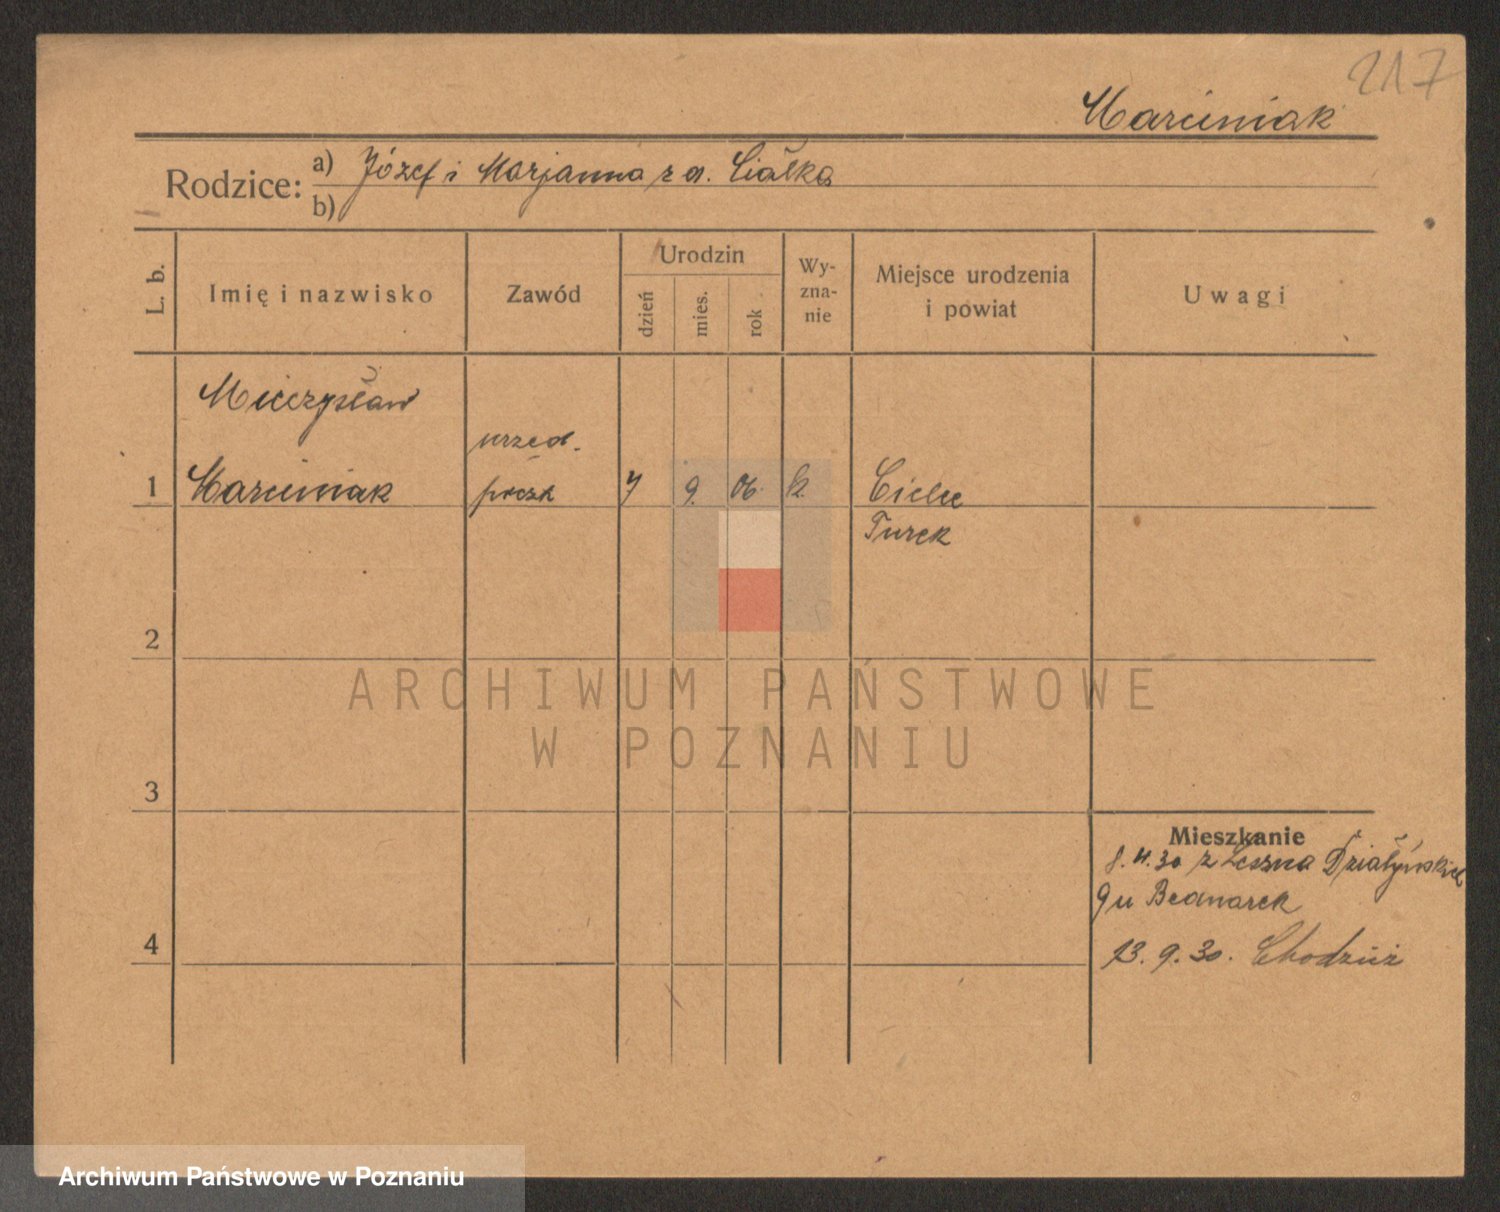 217
Marciniak
Rodzice: a) Józef i Marjanna z d. Ciałka
b)
L. b.
Imię i nazwisko
Zawód
Urodzin
dzień
mies.
rok
Wy-
zna-
nie
Miejsce urodzenia
i powiat
Uwagi
Mieczysław
urzęd.
1 Marciniak poczt 7 9. 06. k.
Turek
2
ARCHIWUM PAŃSTWOWE
W POZNANIU
3
Mieszkanie
8.4.30 z Leszna Działyńskich
9 u Bednarek
4
13.9.30. Chodzież
Archiwum Państwowe w Poznaniu